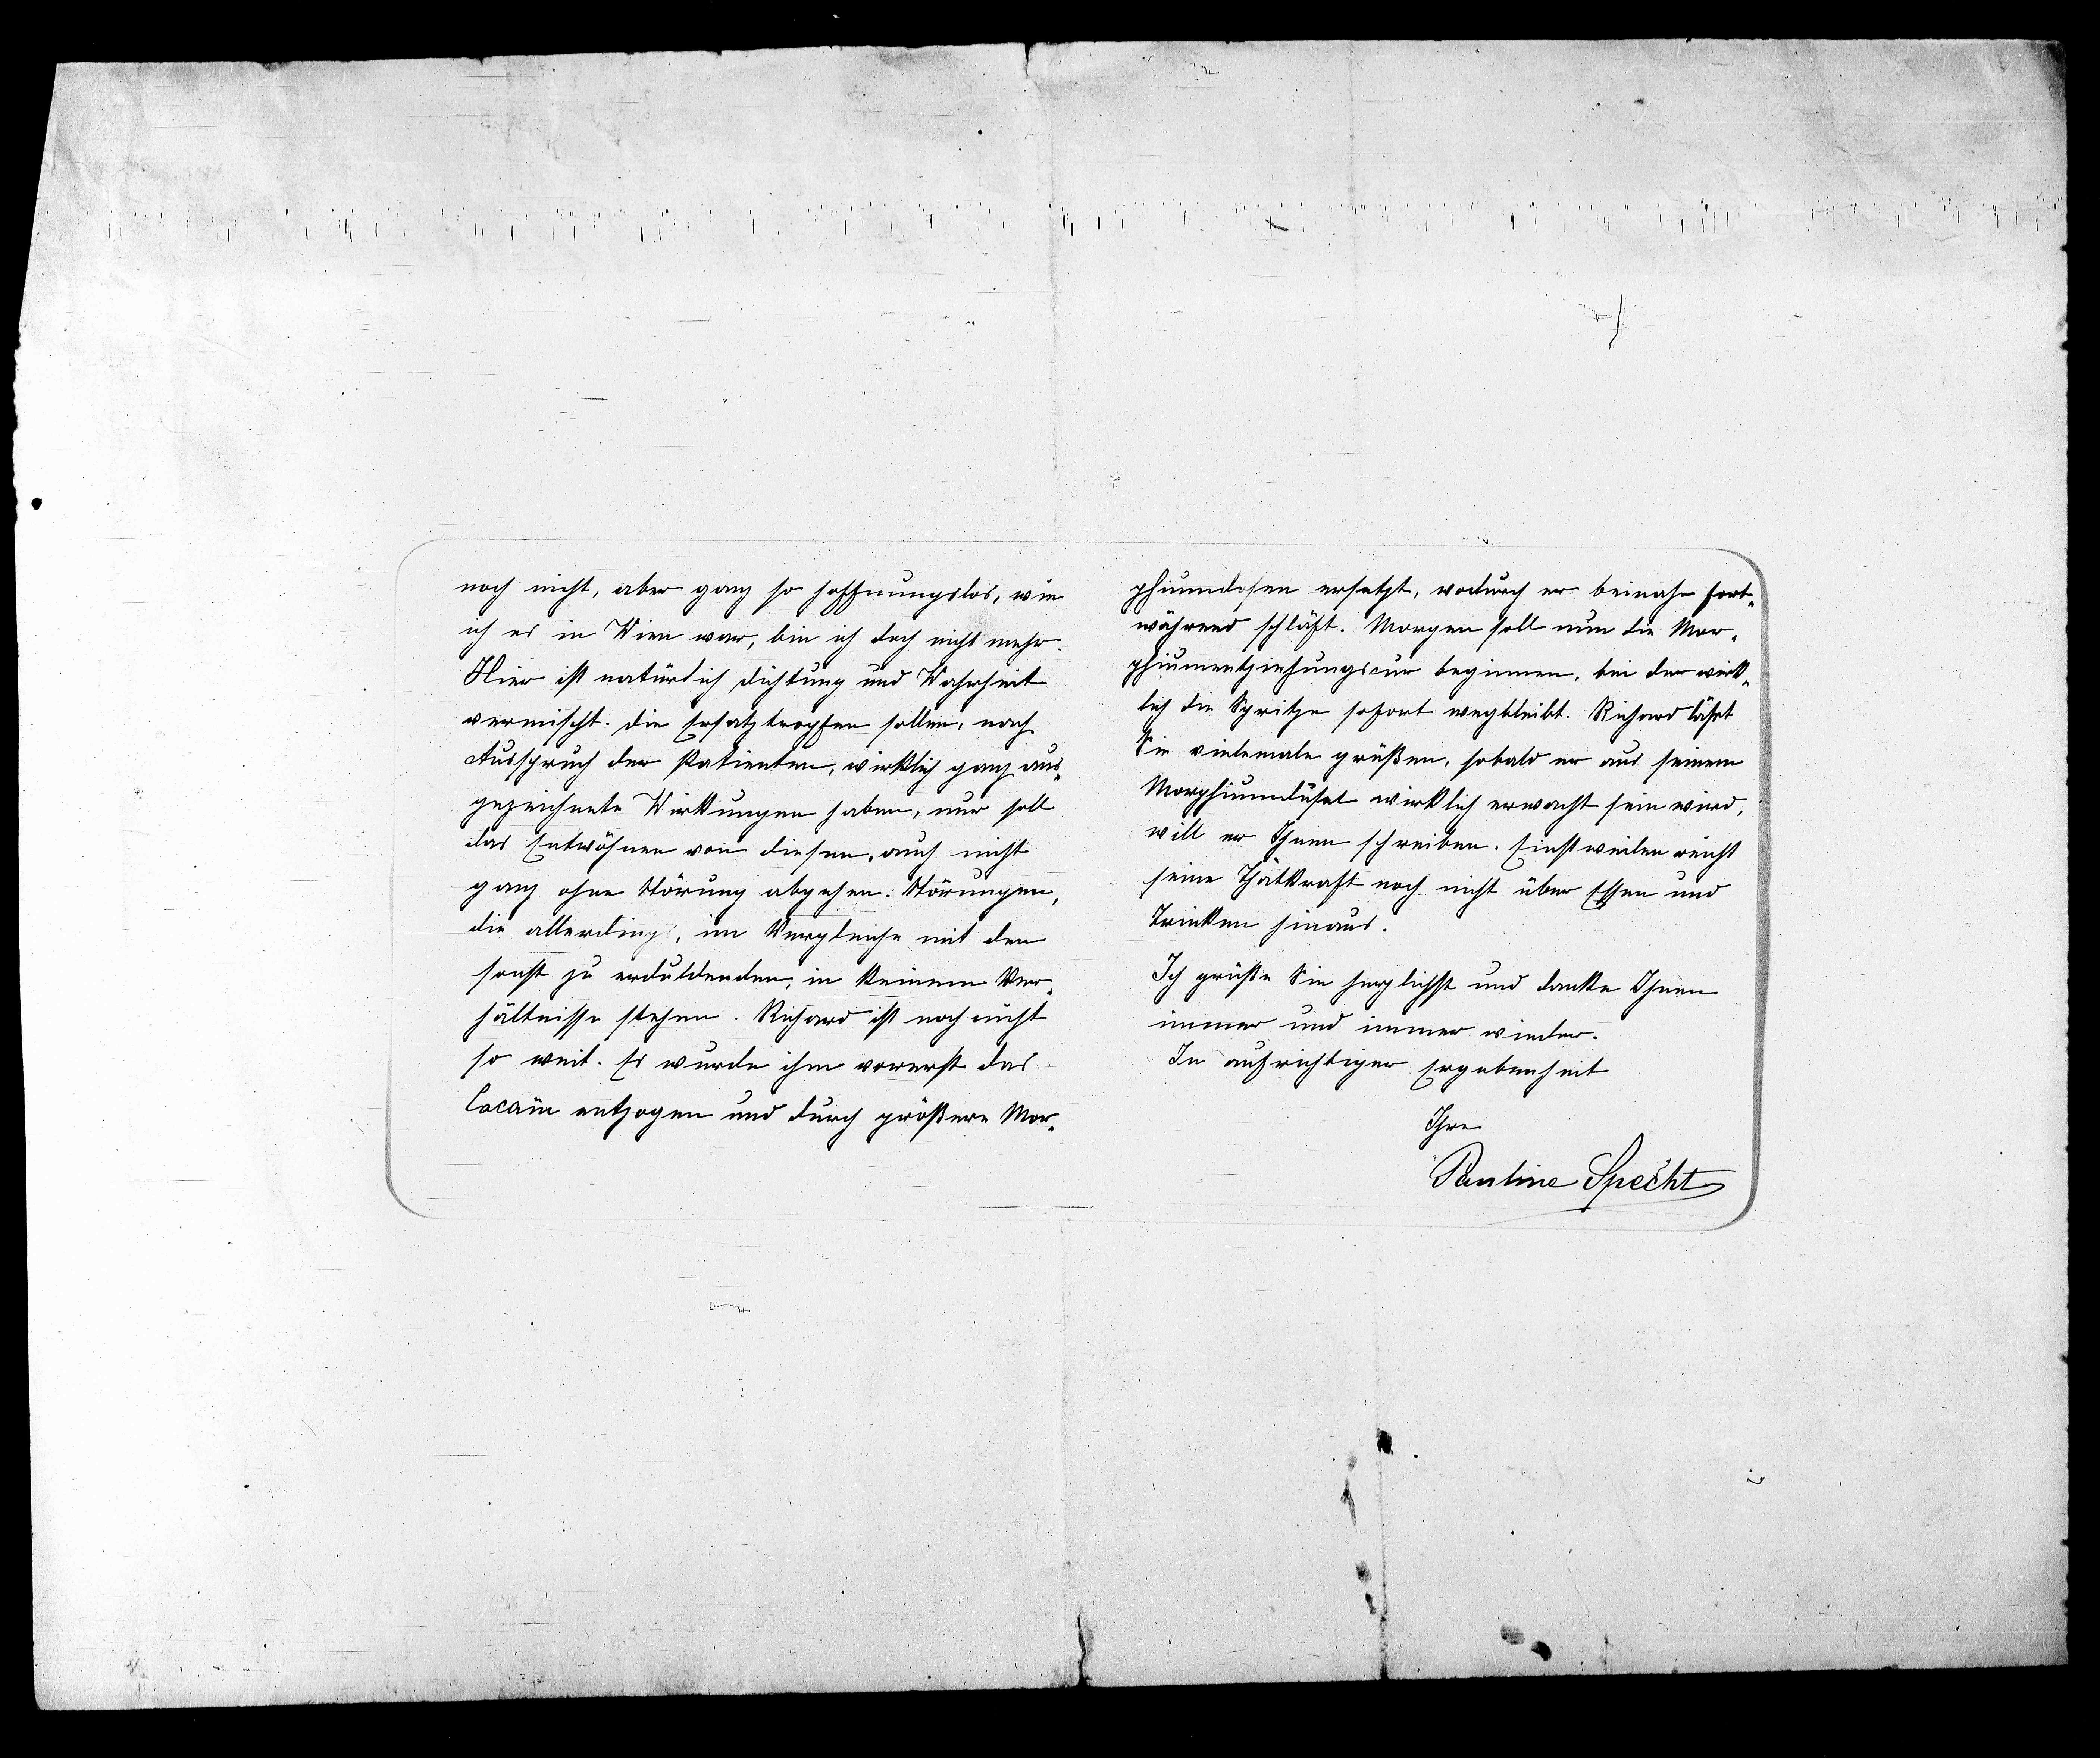 noch nicht, aber ganz so hoffnungslos, wie
ich es in Wien war, bin ich doch nicht mehr.
Hier ist natürlich Dichtung und Wahrheit
vermischt. Die Ersatztropfen sollen, nach
Ausspruch der Patienten, wirklich ganz aus-
gezeichnete Wirkungen haben, nur soll
das Entwöhnen von diesen, auch nicht
ganz ohne Störung abgehen. Störungen,
die allerdings, im Vergleiche mit den
sonst zu erduldenden, in keinem Ver-
hältnisse stehen. Richard ist noch nicht
so weit. Es wurde ihm vorerst das
Cocaïn entzogen und durch größere Mor-
phiumdosen ersetzt, wodurch er beinahe fort-
während schläft. Morgen soll nun die Mor-
phiumentziehungscur beginnen, bei der wirk-
lich die Spritze sofort wegbleibt. Richard läßt
Sie vielemale grüßen, sobald er aus seinem
Morphiumdusel wirklich erwacht sein wird,
will er Ihnen schreiben. Einstweilen reicht
seine Thatkraft noch nicht über Essen und
Trinken hinaus.
Ich grüße Sie herzlichst und danke Ihnen
immer und immer wieder.
In aufrichtiger Ergebenheit
Ihre
Pauline Specht